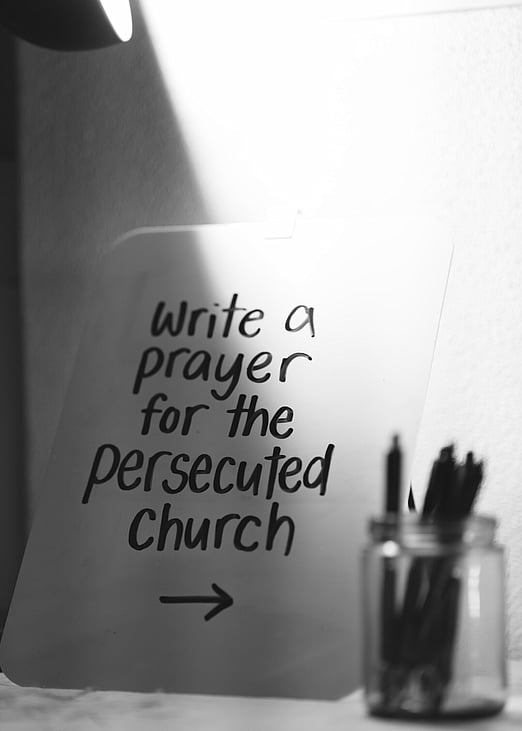 write a
prayer
for the
persecuted
church
→